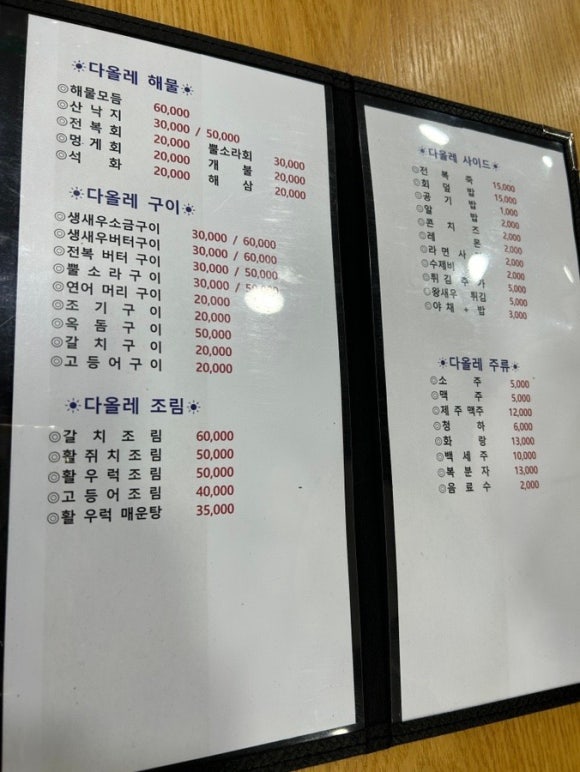 ☀다올레 해물☀
◎해물모듬 60,000
◎산 낙 지 30,000 / 50,000
◎전 복 회 20,000 뿔소라회 30,000
◎멍 게 회 20,000 개 불 20,000
◎석 화 20,000 해 삼 20,000
☀다올레 구이☀
◎생새우소금구이 30,000 / 60,000
◎생새우버터구이 30,000 / 60,000
◎전복 버터 구이 30,000 / 50,000
◎뿔 소 라 구 이 30,000 / 50,000
◎연어 머리 구이 20,000
◎조 기 구 이 20,000
◎옥 돔 구 이 50,000
◎갈 치 구 이 20,000
◎고 등 어 구 이 20,000
☀다올레 조림☀
◎갈 치 조 림 60,000
◎활 쥐 치 조 림 50,000
◎활 우 럭 조 림 50,000
◎고 등 어 조 림 40,000
◎활 우럭 매운탕 35,000
☀다올레 사이드☀
◎전 복 죽 15,000
◎회 덮 밥 15,000
◎공 기 밥 1,000
◎알 밥 2,000
◎콘 치 즈 2,000
◎레 몬 2,000
◎라 면 사 2,000
◎수제비 2,000
◎튀 김 가 5,000
◎왕새우 튀김 5,000
◎야 채 + 밥 3,000
☀다올레 주류☀
◎소 주 5,000
◎맥 주 5,000
◎제 주 맥주 12,000
◎청 하 6,000
◎화 랑 13,000
◎백 세 주 10,000
◎복 분 자 13,000
◎음 료 수 2,000